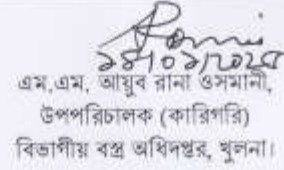 ১৪/০১/২০২৫
এম.এম. আয়ুব রানা ওসমানী,
উপপরিচালক (কারিগরি)
বিভাগীয় বস্ত্র অধিদপ্তর, খুলনা।